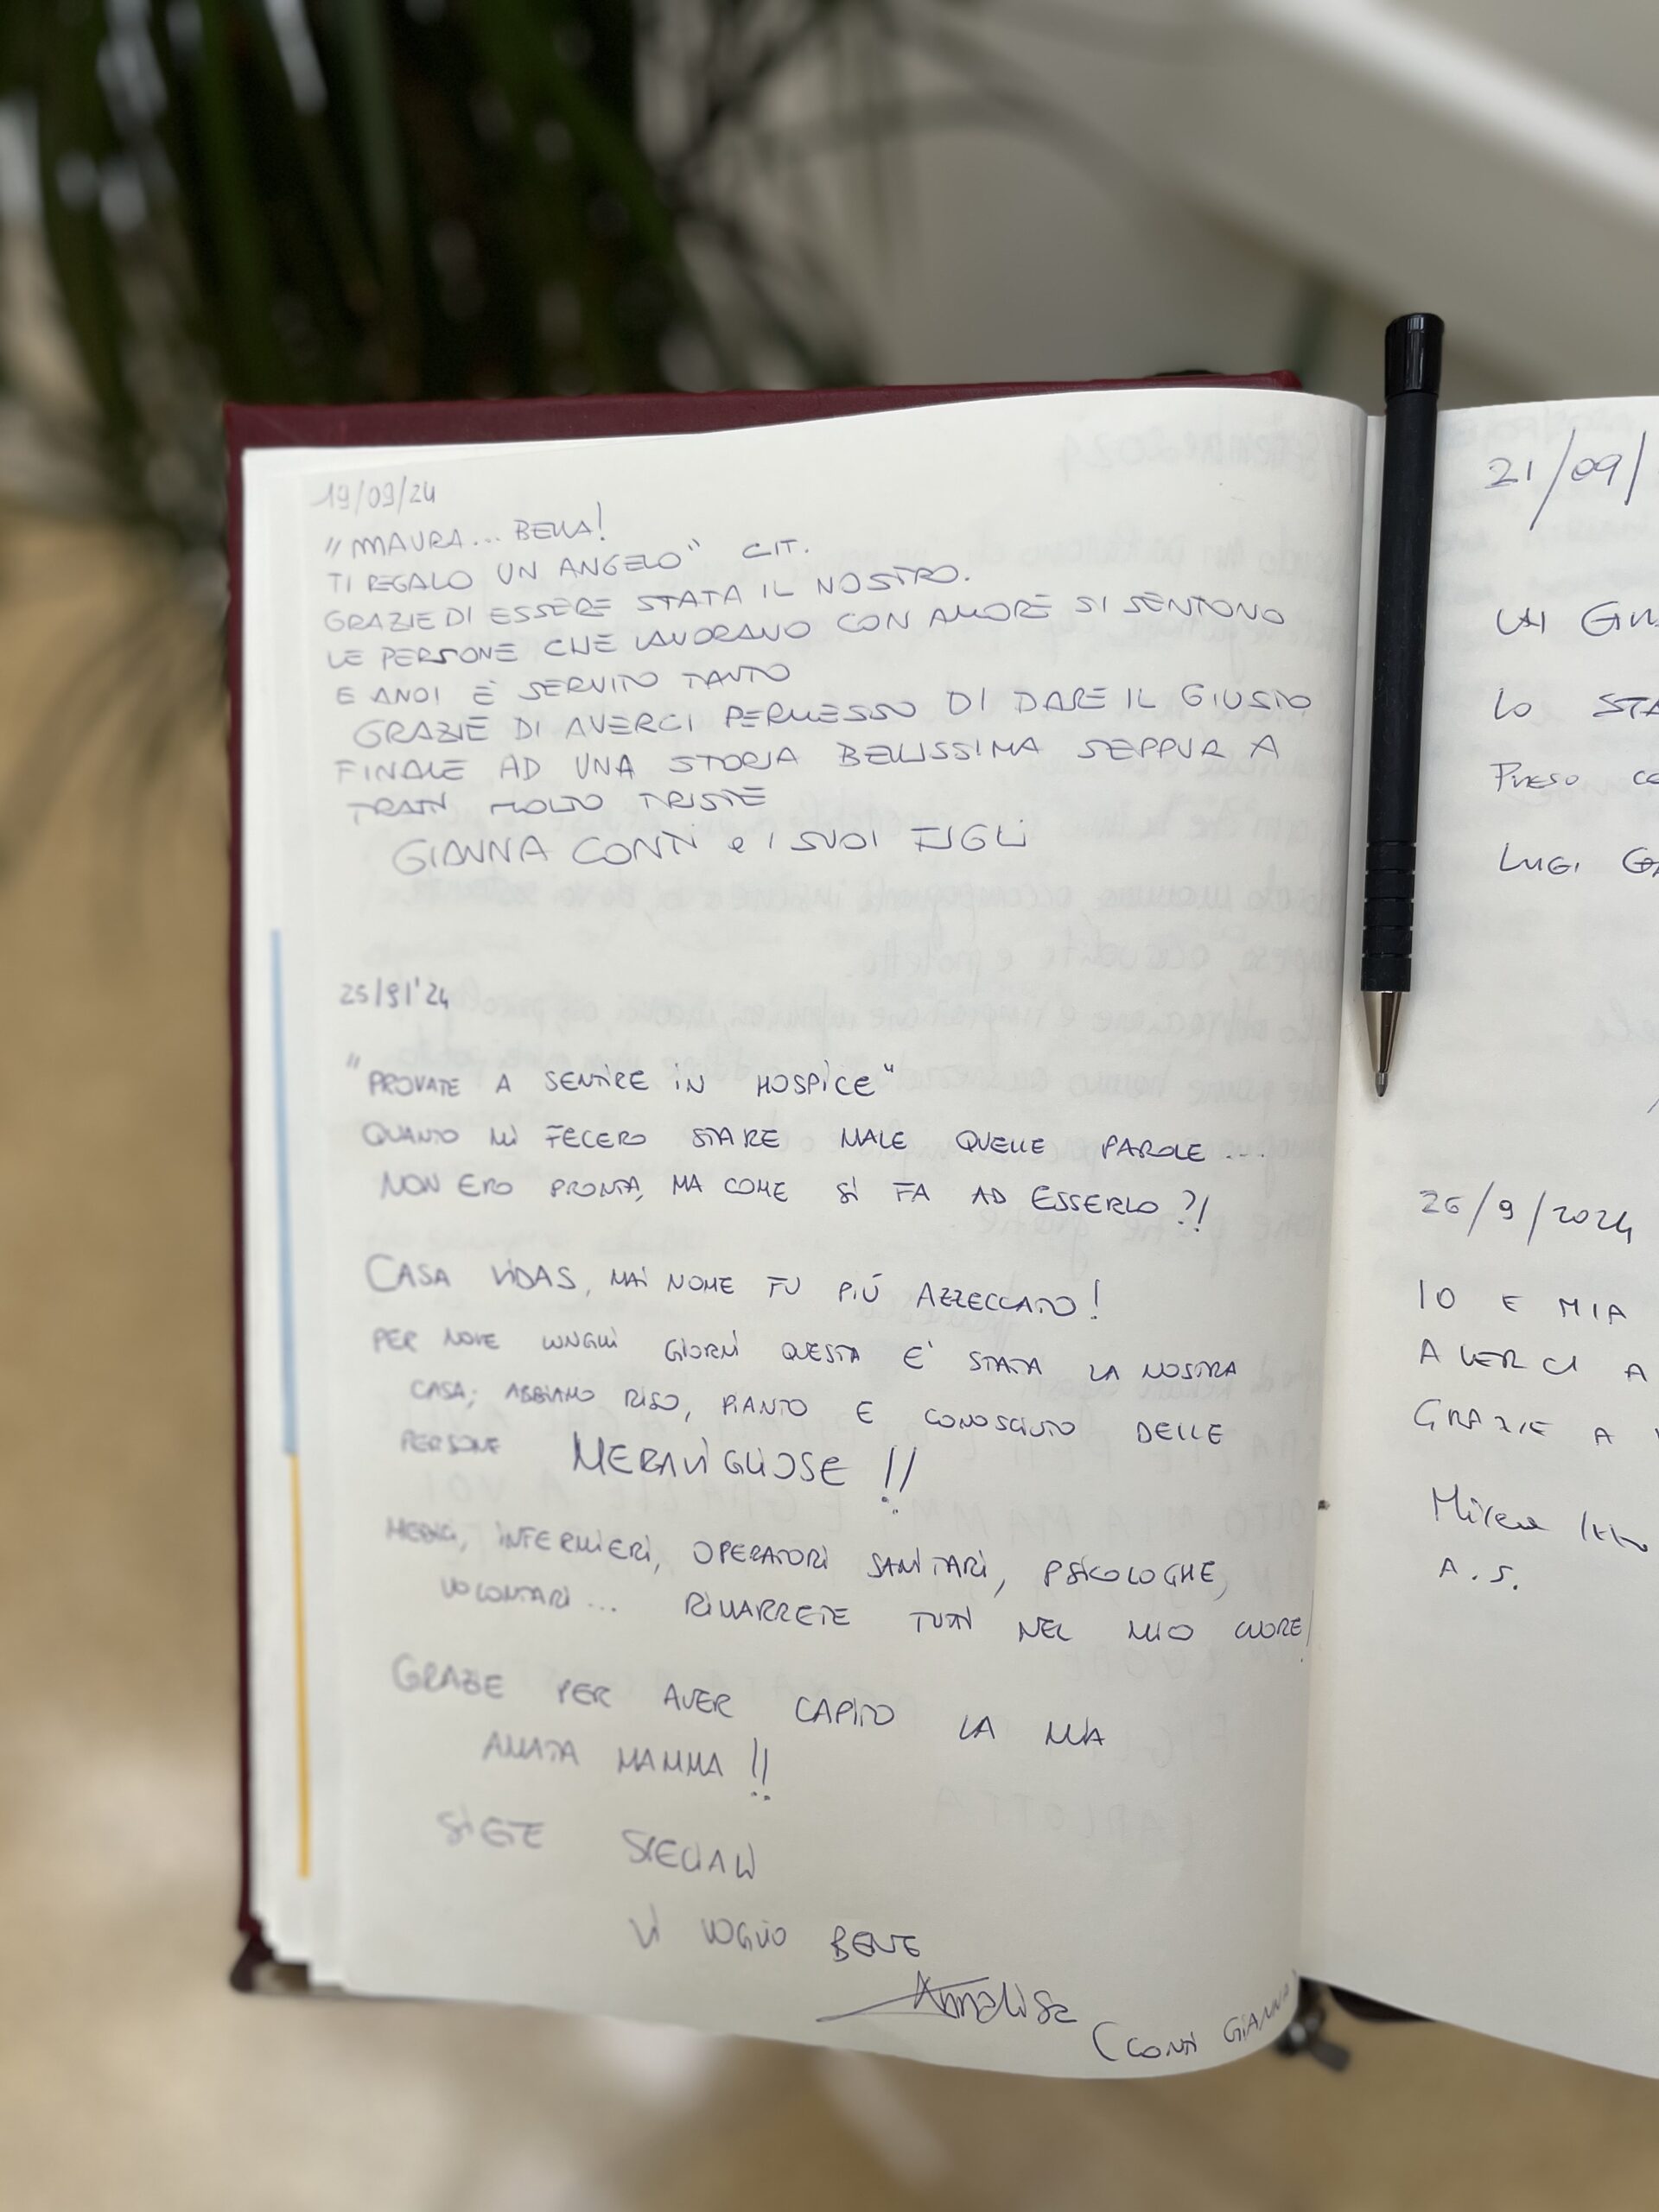 19/09/24
"MAURA... BELLA!
TI REGALO UN ANGELO" CIT.
GRAZIE DI ESSERE STATA IL NOSTRO.
LE PERSONE CHE LAVORANO CON AMORE SI SENTONO
E A NOI È SERVITO TANTO
GRAZIE DI AVERCI PERMESSO DI DARE IL GIUSTO
FINALE AD UNA STORIA BELLISSIMA SEPPUR A
TRATTI MOLTO TRISTE
GIANNA CONTI e I SUOI FIGLI
25/9/'24
"PROVATE A SENTIRE IN HOSPICE"
QUANTO MI FECERO STARE MALE QUELLE PAROLE...
NON ERO PRONTA, MA COME SI FA AD ESSERLO?!
CASA VIDAS, MAI NOME FU PIÙ AZZECCATO!
PER NOVE LUNGHI GIORNI QUESTA E' STATA LA NOSTRA
CASA; ABBIAMO RISO, PIANTO E CONOSCIUTO DELLE
PERSONE MERAVIGLIOSE!!
MEDICI, INFERMIERI, OPERATORI SANITARI, PSICOLOGHE,
VOLONTARI... RIMARRETE TUTTI NEL MIO CUORE!
GRAZIE PER AVER CAPITO LA MIA
AMATA MAMMA!!
SIETE SPECIALI
VI VOGLIO BENE
Annalisa
(CONTI GIANNA)
21/09/
LO STA
PRESO CO
LUIGI GA
26/9/2024
IO E MIA
AVERCI A
GRAZIE A
A.S.